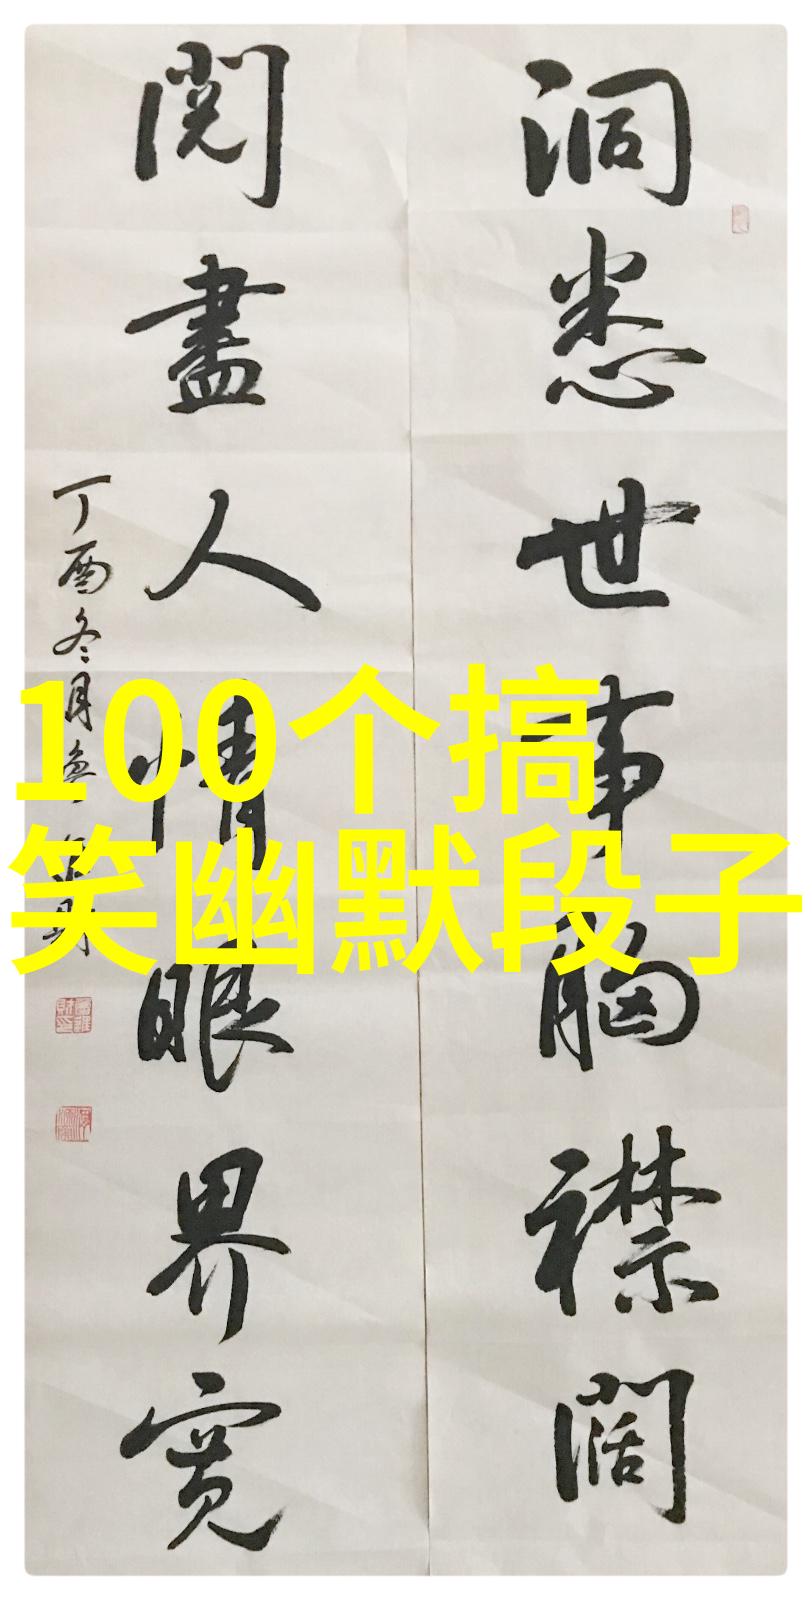 洞悉世事胸襟阔
阅尽人情眼界宽
丁酉冬月
100个搞
笑幽默段子